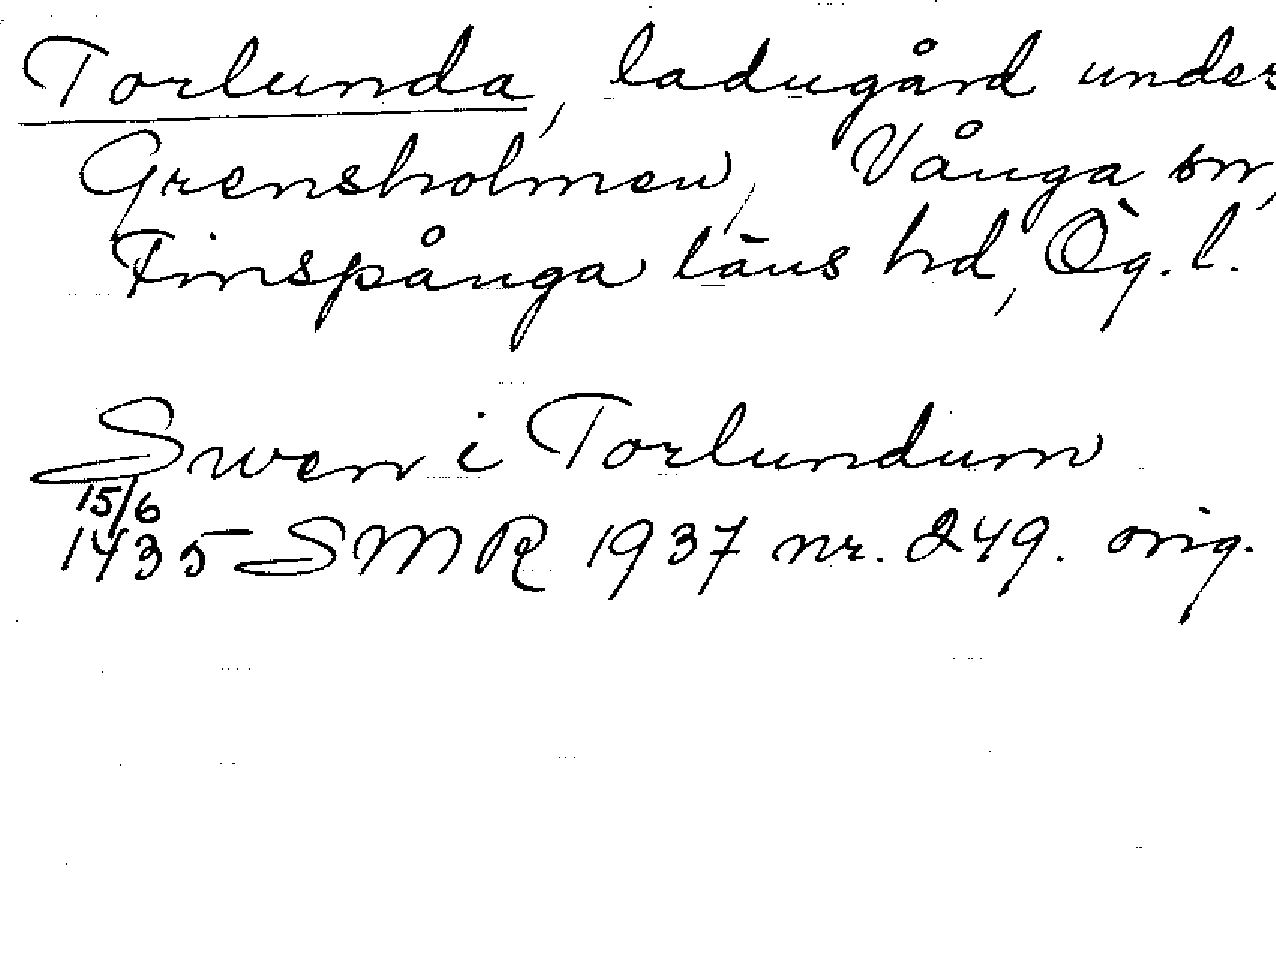 Torlunda, ladugård under
Grensholmen, Vånga sn,
Finspånga läns hd, Ög. l.
Swen i Torlundum
15/6
1435 SMR 1937 nr. 249. orig.